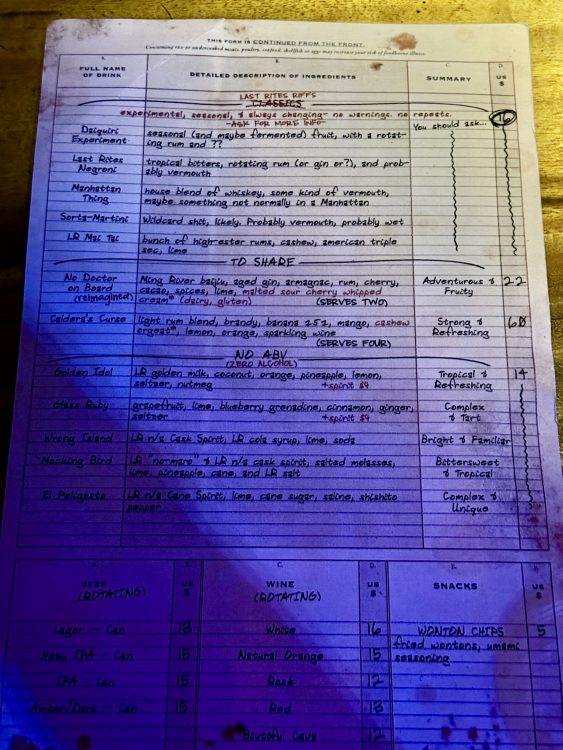 THIS FORM IS CONTINUED FROM THE FRONT.
Consuming raw or undercooked meats, poultry, seafood, shellfish or eggs may increase your risk of foodborne illness.
A. B. C. D.
FULL NAME OF DRINK DETAILED DESCRIPTION OF INGREDIENTS SUMMARY US $
LAST RITES RIFFS
CLASSICS
experimental, seasonal, & always changing - no warnings. no repeats. 16
-ASK FOR MORE INFO- You should ask...
Daiquiri seasonal (and maybe fermented) fruit, with a rotat-
Experiment ing rum and ??
Last Rites tropical bitters, rotating rum (or gin or?), and prob-
Negroni ably vermouth
Manhattan house blend of whiskey, some kind of vermouth,
Thing maybe something not normally in a Manhattan
Sorta-Martini Wildcard shit, likely. Probably vermouth, probably wet
LR Mai Tai bunch of high-ester rums, cashew, american triple
sec, lime
TO SHARE
No Doctor Ming River baijiu, aged gin, armagnac, rum, cherry, Adventurous & 22
on Board cacao, spices, lime, malted sour cherry whipped Fruity
(reimagined) cream* (dairy, gluten) (SERVES TWO)
Caldera's Curse light rum blend, brandy, banana 151, mango, cashew Strong & 60
orgeat*, lemon, orange, sparkling wine Refreshing
(SERVES FOUR)
NO ABV
(ZERO ALCOHOL)
Golden Idol LR golden milk, coconut, orange, pineapple, lemon, Tropical & 14
seltzer, nutmeg +spirit $4 Refreshing
Glass Ruby grapefruit, lime, blueberry grenadine, cinnamon, ginger, Complex
seltzer +spirit $4 & Tart
Wrong Island LR n/a Cask Spirit, LR cola syrup, lime, soda Bright & Familiar
Mocking Bird LR "no-maro" & LR n/a cask spirit, salted molasses, Bittersweet
lime, pineapple, cane, and LR salt & Tropical
El Peligosto LR n/a Cane Spirit, lime, cane sugar, saline, shishito Complex &
pepper Unique
BEER US $ WINE US $ SNACKS
(ROTATING) (ROTATING)
Lager - Can 13 White 16 WONTON CHIPS 5
Hazy IPA - Can 15 Natural Orange 15 fried wontons, umami
seasoning
IPA - Can 15 Rosé 12
Amber/Dark - Can 15 Red 13
Cava 12